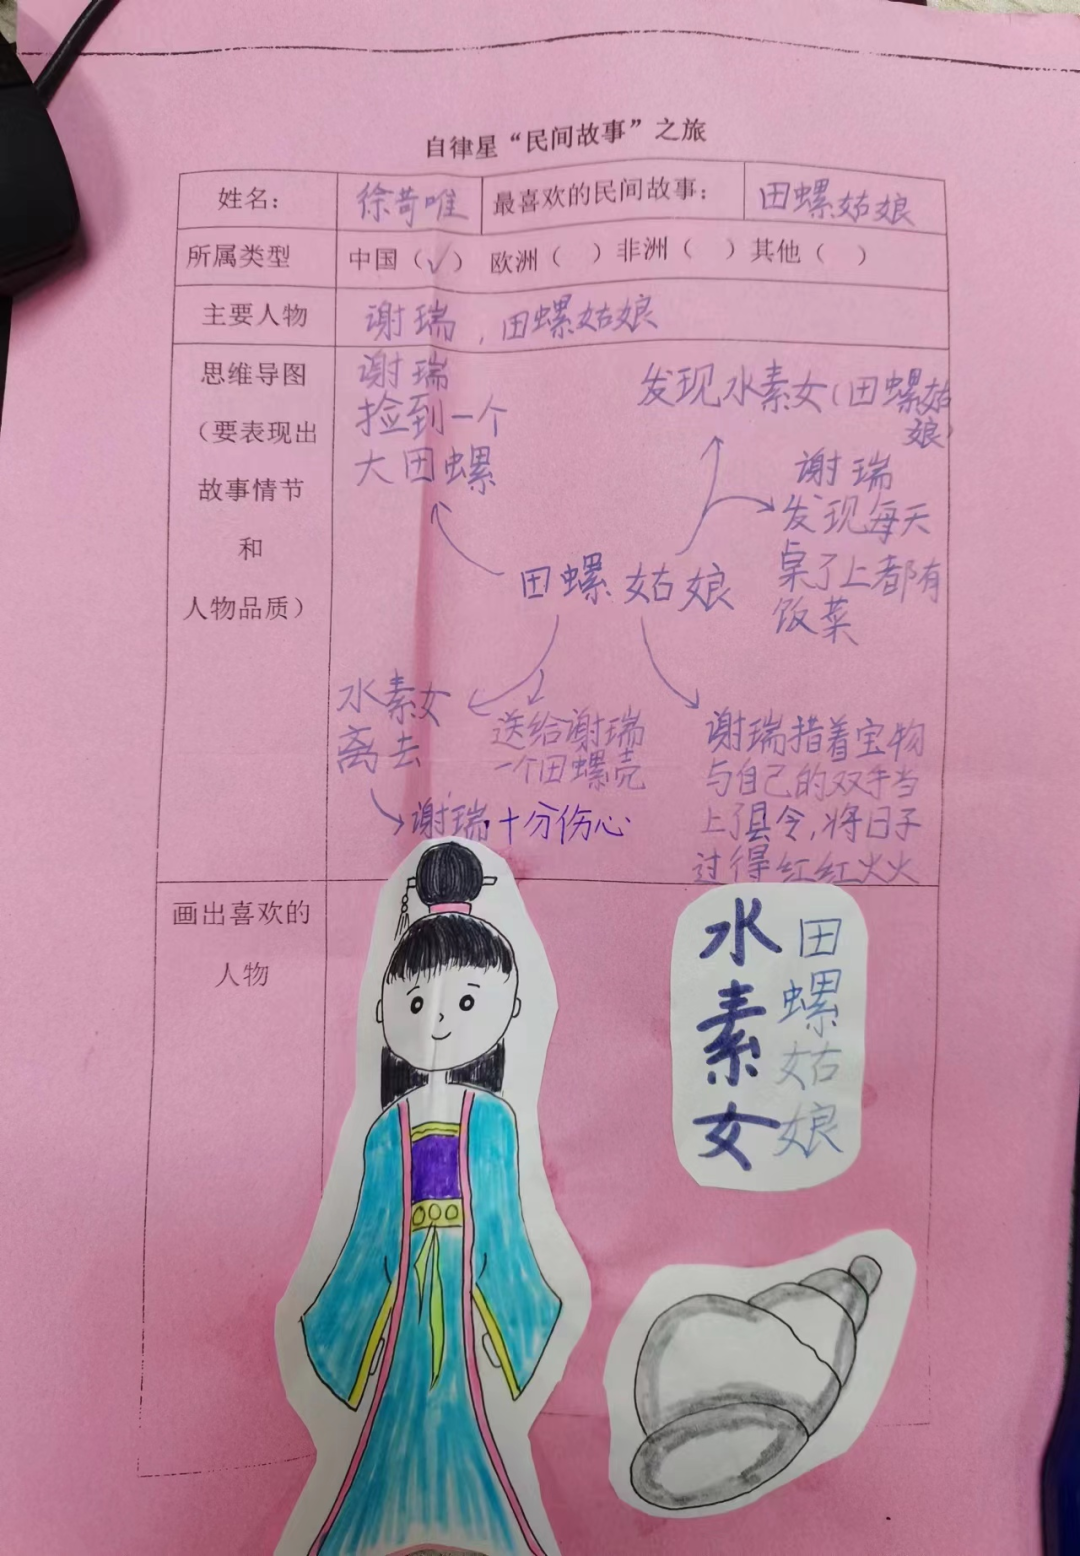 自律星“民间故事”之旅
姓名： 徐苛唯 最喜欢的民间故事： 田螺姑娘
所属类型 中国（√） 欧洲（ ）非洲（ ）其他（ ）
主要人物 谢瑞，田螺姑娘
思维导图
（要表现出
故事情节
和
人物品质）
谢瑞
捡到一个
大田螺
发现水素女（田螺姑
娘）
谢瑞
发现每天
桌子上都有
饭菜
田螺姑娘
水素女
离去
送给谢瑞
一个田螺壳
谢瑞十分伤心
谢瑞措着宝物
与自己的双手当
上了县令，将日子
过得红红火火
画出喜欢的
人物
水素女
田螺姑娘